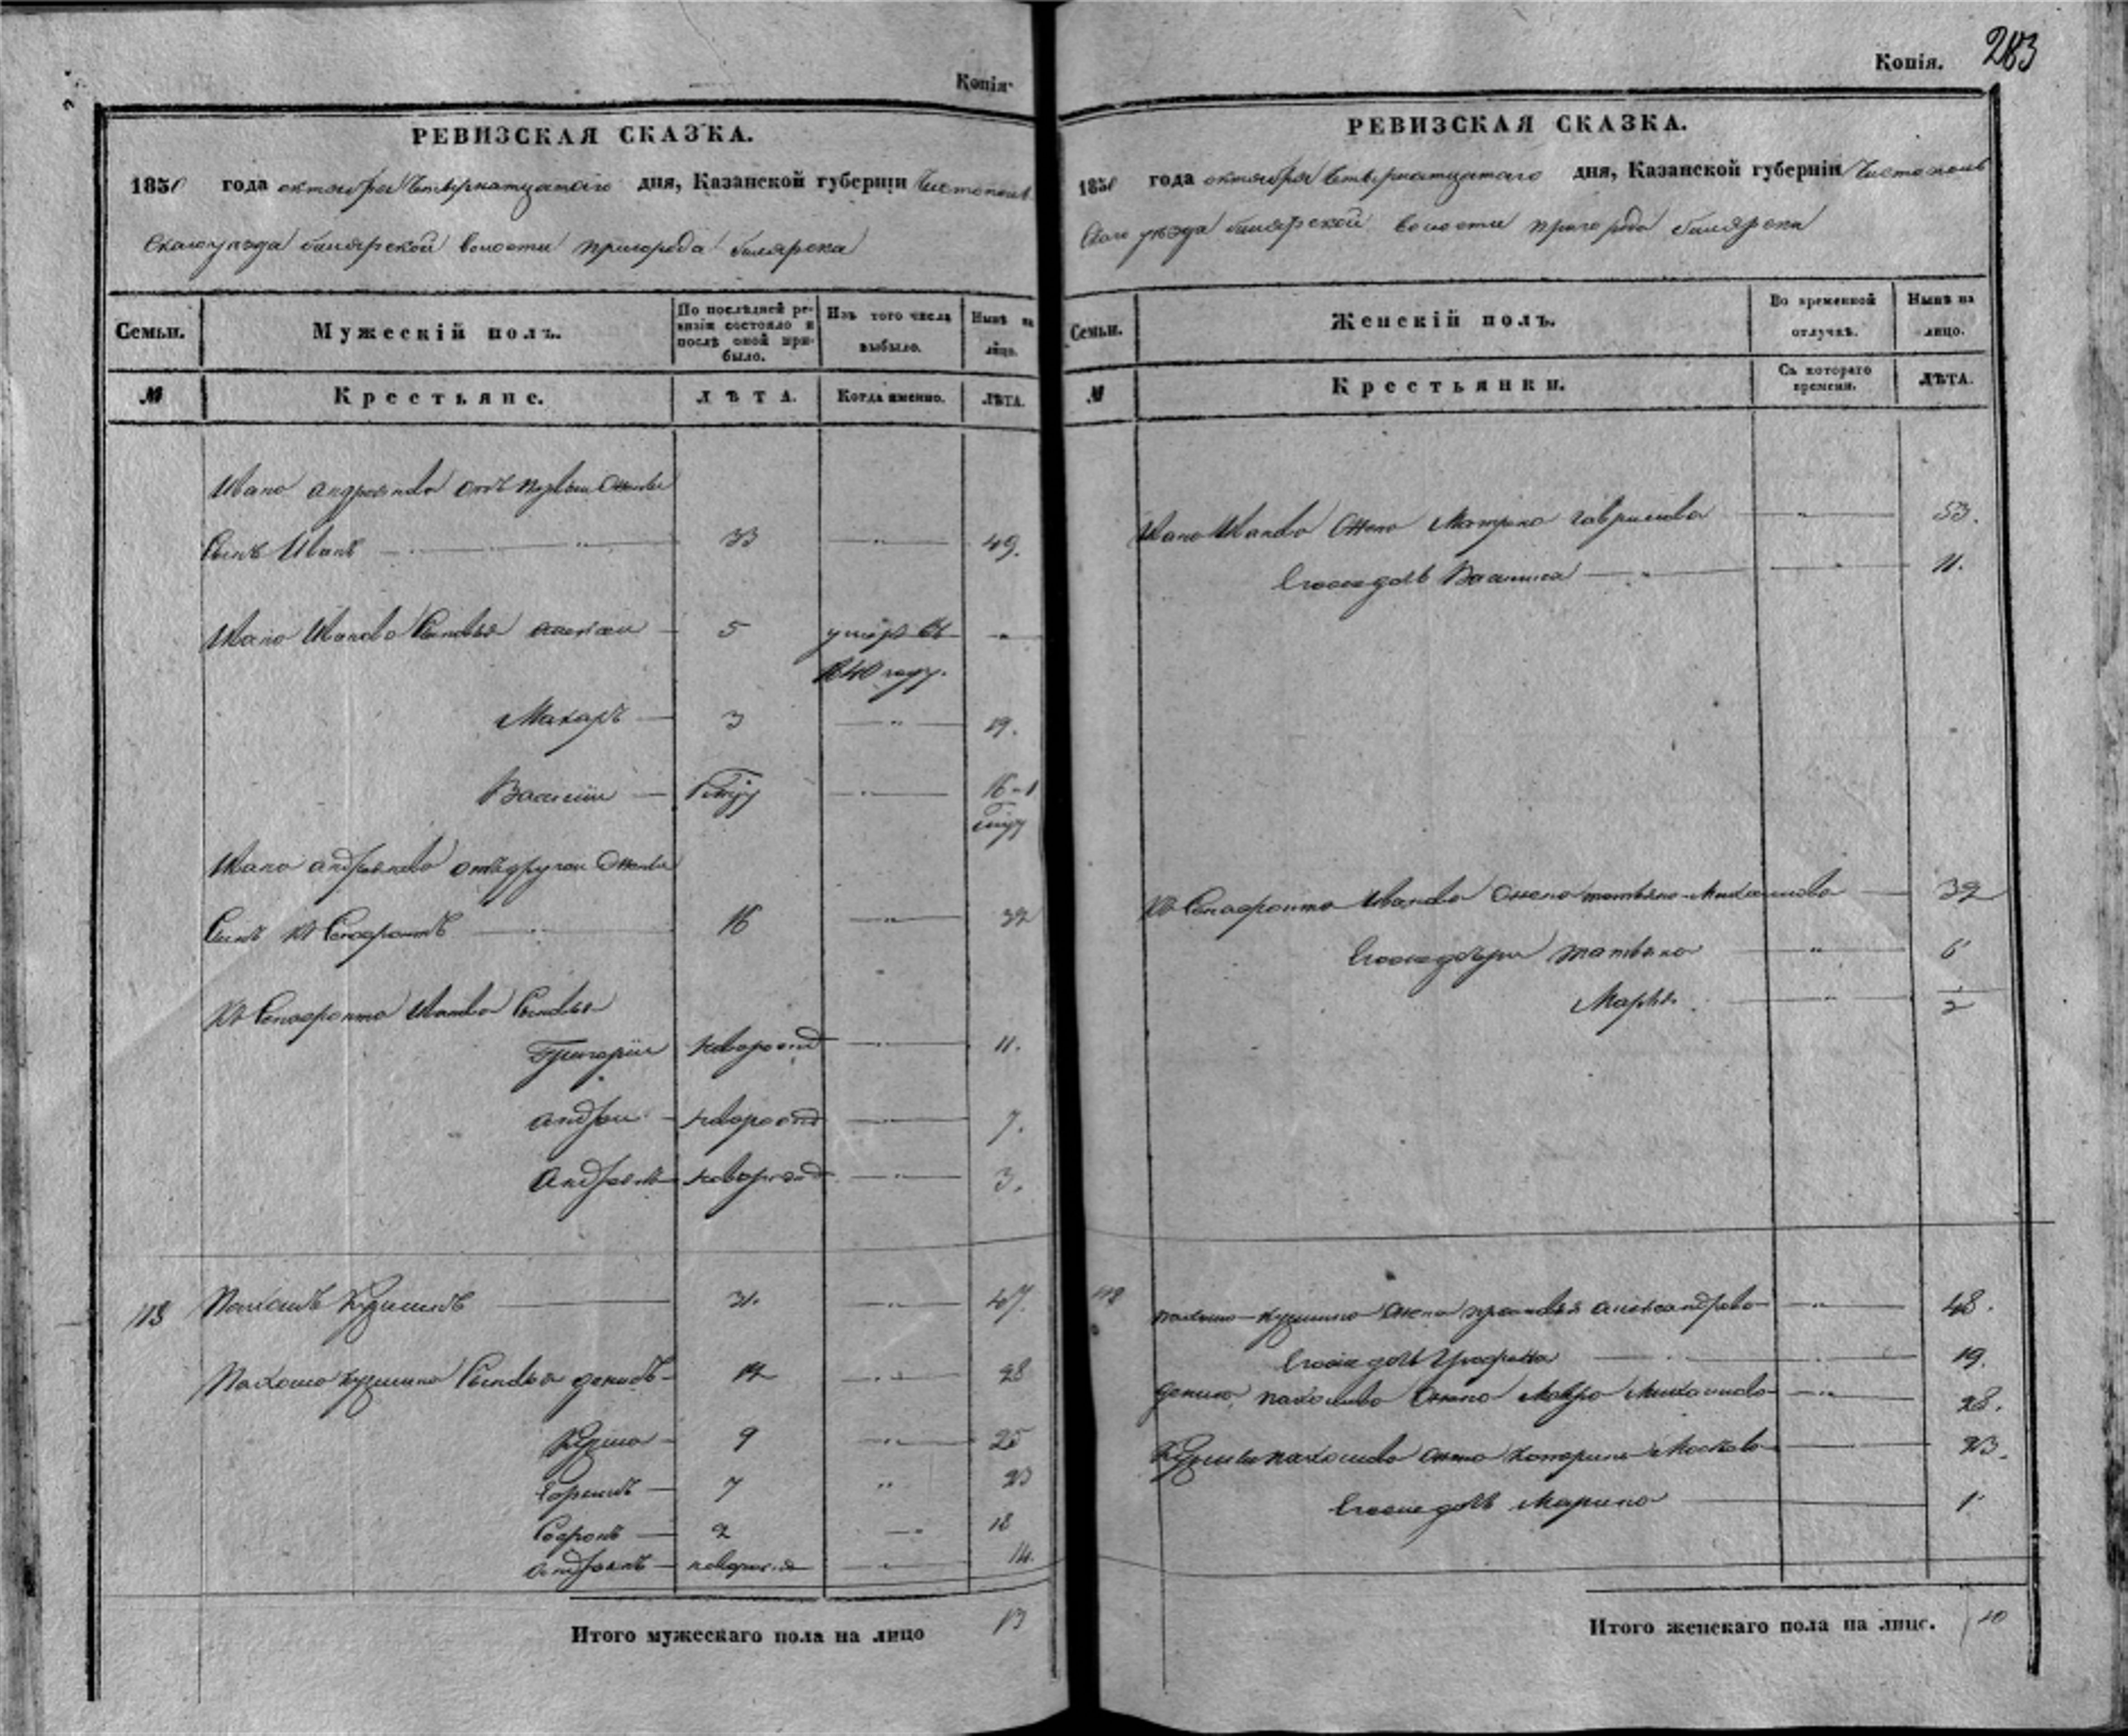 Копія.
РЕВИЗСКАЯ СКАЗКА.
1850 года октября Четвернатцатаго дня, Казанской губерніи Чистополь
скаго уезда билярской волости пригорода билярска
Семьи.
Мужескій полъ.
По послѣдней ре-
визіи состояло и
послѣ оной при-
было.
Изъ того числа
выбыло.
Нынѣ на
лицо.
№
Крестьяне.
ЛѢТА.
Когда именно.
ЛѢТА.
Ивана андреянова отъ первои жены
Сынъ Иванъ 33 49.
Ивана Иванова Сыновья 5 умеръ въ
1840 году.
Макаръ 3 19.
Василіи 16-1
Ивана андреянова отъ другои жены
Сынъ Ксенофонтъ 16 32
Ксенофонта Иванова Сыновья
Григоріи новорожд 11.
андреи новорожд 7.
Андреянъ новорожд 3.
113 Пахомъ Кузминъ 31. 47.
Пахома кузмина Сыновья денисъ 12 28
Кузма 9 25
7 23
Софронъ 2 18
андреянъ новорожд 14.
Итого мужескаго пола на лицо 13
Копія. 283
РЕВИЗСКАЯ СКАЗКА.
1850 года октября Четвернатцатаго дня, Казанской губерніи Чистополь
скаго уѣзда билярской волости пригорода билярска
Семьи.
Женскій полъ.
Во временной
отлучкѣ.
Нынѣ на
лицо.
№
Крестьянки.
Съ котораго
времени.
ЛѢТА.
Ивана Иванова жена Матрена гаврилова 53.
Егоже дочь Василиса 11.
Ксенофонта Иванова жена татьяна Михаилова 32
Егоже дочери татьяна 6
Марья 1/2
113 пахома кузмина жена прасковья александрова 48.
Егоже дочь 19.
дениса пахомова жена Мавра Михаилова 28.
Кузмы пахомова жена катерина 23.
Егоже дочь Марина 1
Итого женскаго пола на лицо. 10